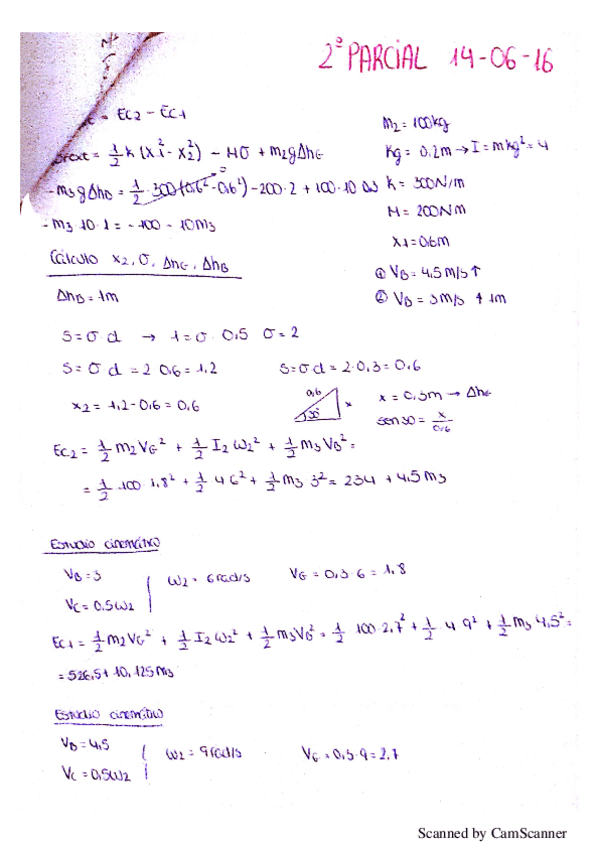 2º PARCIAL 14-06-16
= Ec2 - Ec1
= 1/2 k (x1² - x2²) - Mσ + m2gΔhG
- m3 gΔhB = 1/2 · 300 (0.6² - 0.6²) - 200 · 2 + 100 · 10 · 0.3
- m3 · 10 · 1 = - 100 - 10m3
m2 = 100kg
Kg = 0.2m → I = mkg² = 4
k = 300N/m
M = 200Nm
x1 = 0.6m
① VB = 4.5m/s ↑
② VB = 3m/s ↑ 1m
Cálculo x2, σ, ΔhG, ΔhB
ΔhB = 1m
S = σ · d → 1 = σ · 0.5 σ = 2
S = σ d = 2 · 0.6 = 1.2
S = σ d = 2 · 0.3 = 0.6
x2 = 1.2 - 0.6 = 0.6
0.6
x
30
x = 0.3m → ΔhG
sen30 = x/0.6
Ec2 = 1/2 m2 VG² + 1/2 I2 ω2² + 1/2 m3 VB² =
= 1/2 · 100 · 1.8² + 1/2 · 4 · 6² + 1/2 m3 · 3² = 234 + 4.5 m3
Estudio cinemático
VB = 3
VC = 0.5ω2
ω2 = 6rad/s
VG = 0.3 · 6 = 1.8
Ec1 = 1/2 m2 VG² + 1/2 I2 ω2² + 1/2 m3 VB² = 1/2 · 100 · 2.7² + 1/2 · 4 · 9² + 1/2 m3 4.5² =
= 526.5 + 10.125m3
Estudio cinemático
VB = 4.5
VC = 0.5ω2
ω2 = 9rad/s
VG = 0.3 · 9 = 2.7
Scanned by CamScanner